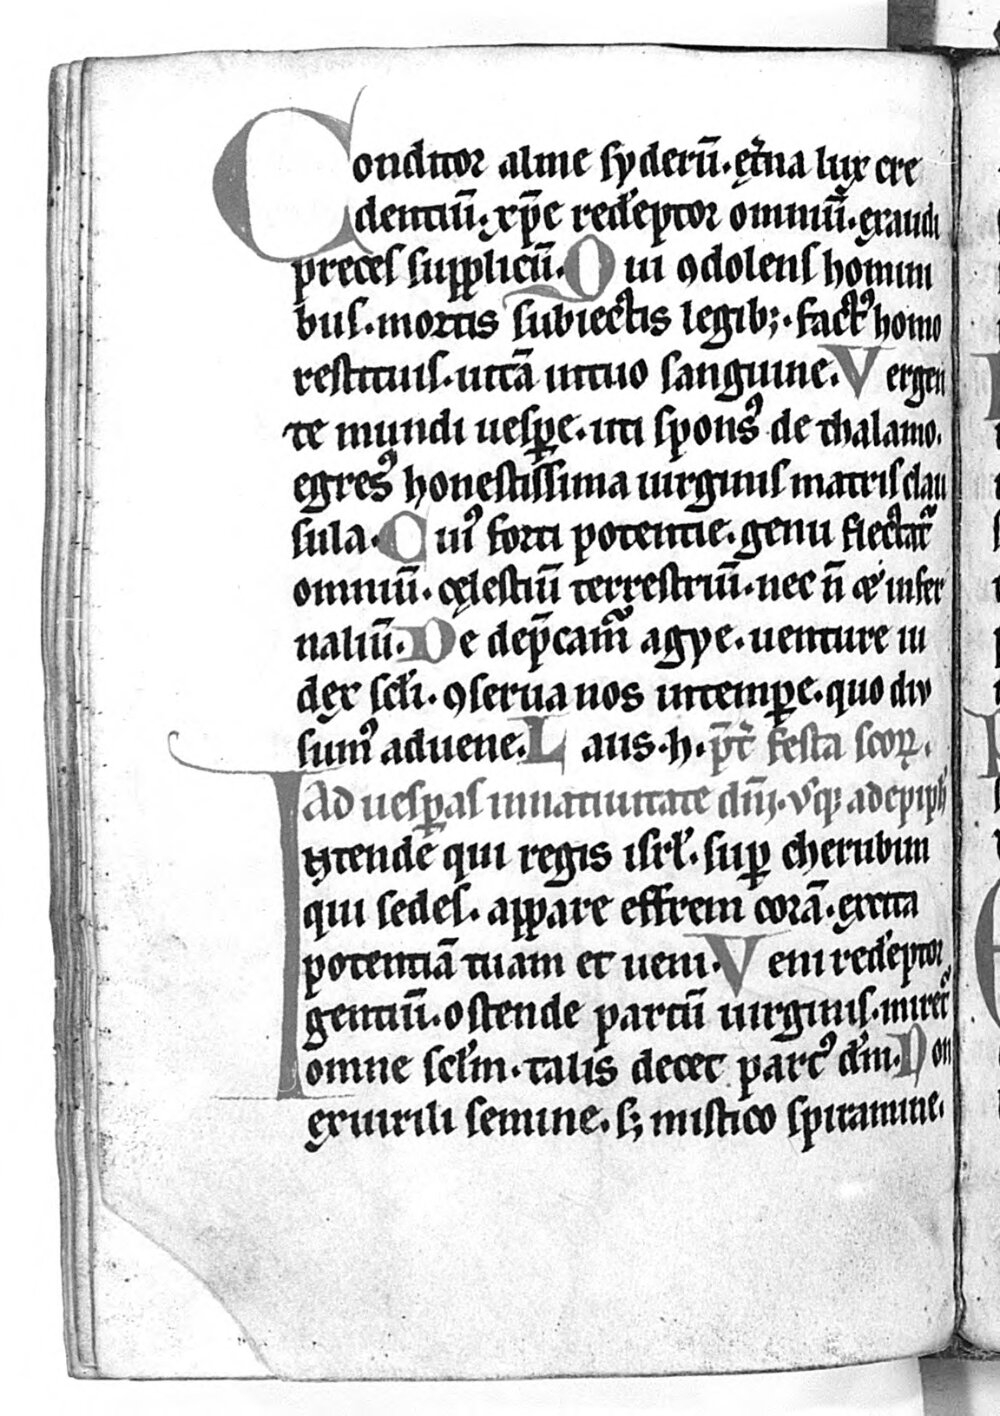 Conditor alme syderū. et̾na lux cre
dentiū. xp̄e redēptor omniū. exaudi
preces supplicū. Qui ꝯdolens homini
bus. mortis subiectis legibꝫ. factꝰ homo
restituis. uitā intuo sanguine. Vergen
te mundi uesꝑe. uti sponsꝰ de thalamo.
egresꝰ honestissima uirginis matris clau
sula. Cuiꝰ forti potentie. genu flectat᷑
omniū. cęlestiū terrestriū. nec n̄ ꝫ infer
naliū. De dep̄cam᷑ agye. uenture iu
dex scl̄i. ꝯserua nos intemꝑe. quo diu
sumꝰ aduene. Laus. h. p̄t̾ festa scoꝝ.
Ad uesꝑas innatiuitate dn̄i. vsqꝫ ad epiph̄
Intende qui regis isrl̄. suꝑ cherubim
qui sedes. appare effrem corā. excita
potentiā tuam et ueni. Veni redēptor
gentiū. ostende partū uirginis. miret᷑
omne scl̄m. talis decet partꝰ dm̄. Non
exuirili semine. sꝫ mistico spiramine.